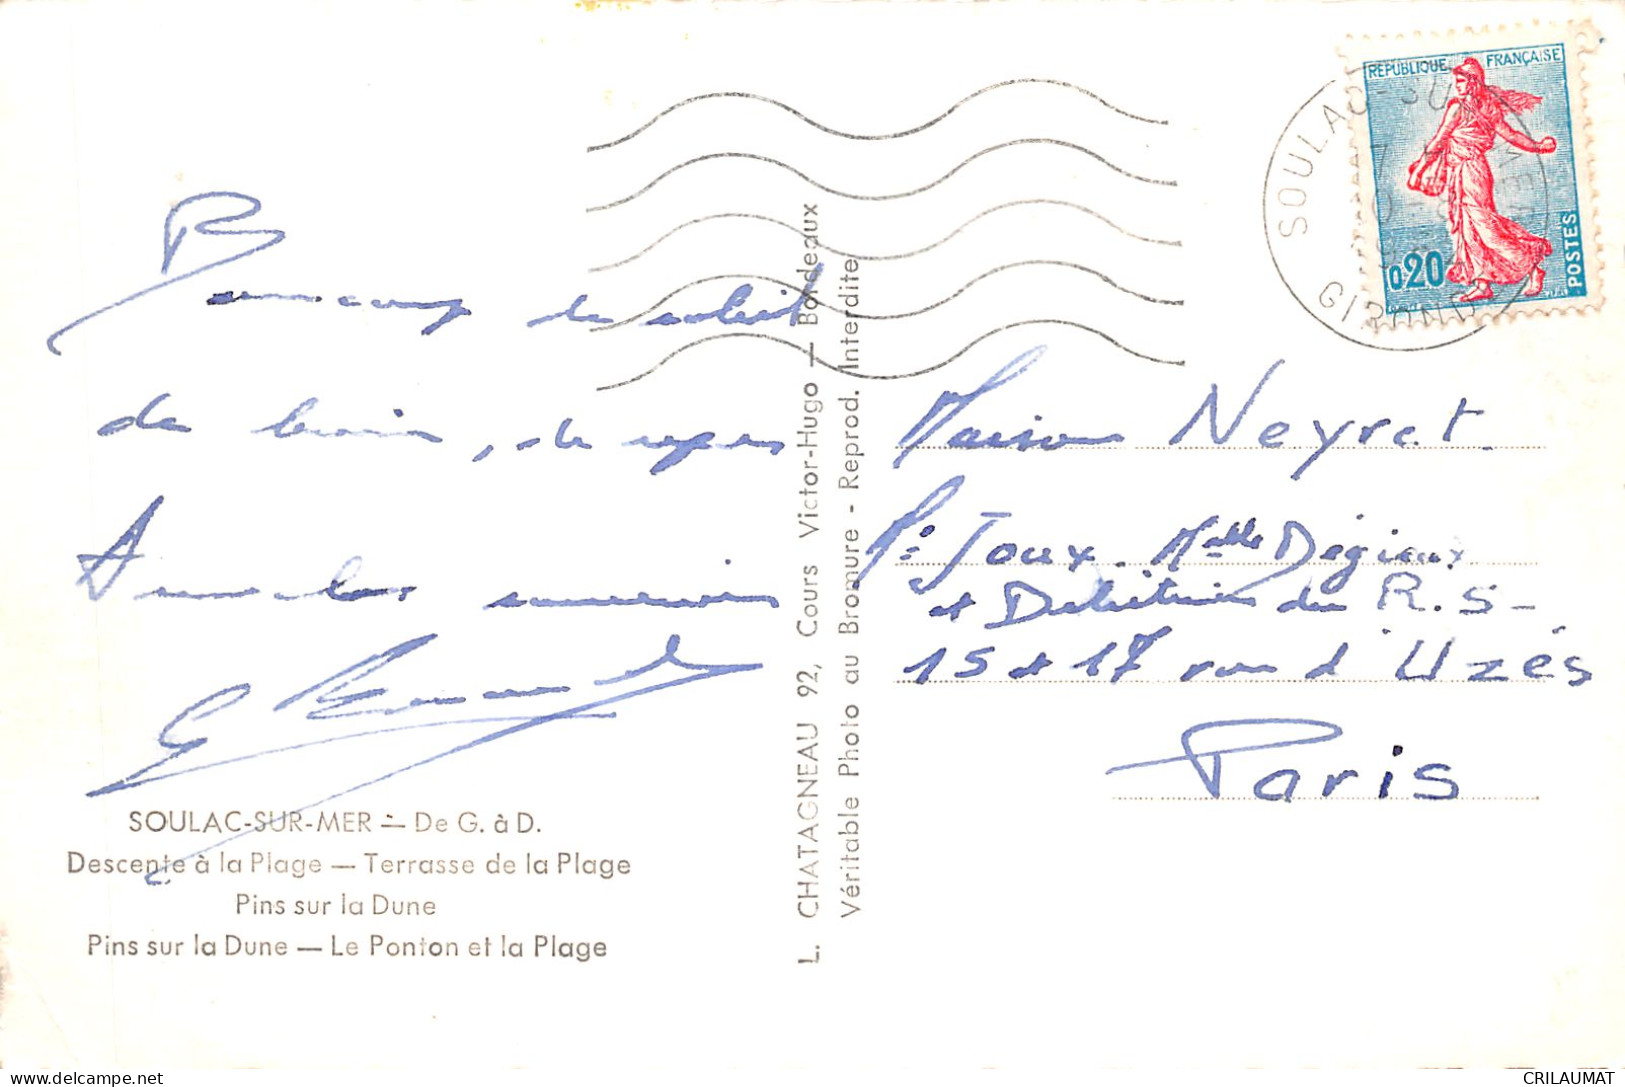 Beaucoup de soleil
de bains, de repos
Amicales
SOULAC-SUR-MER — De G. à D.
Descente à la Plage — Terrasse de la Plage
Pins sur la Dune
Pins sur la Dune — Le Ponton et la Plage
L. CHATAGNEAU 92, Cours Victor-Hugo — Bordeaux
Véritable Photo au Bromure - Reprod. Interdite
RÉPUBLIQUE FRANÇAISE
0,20
POSTES
SOULAC-SUR-MER
GIRONDE
Maison Neyret
Joux
du R.S-
15 et 17 rue d'Uzés
Paris
CRILAUMAT